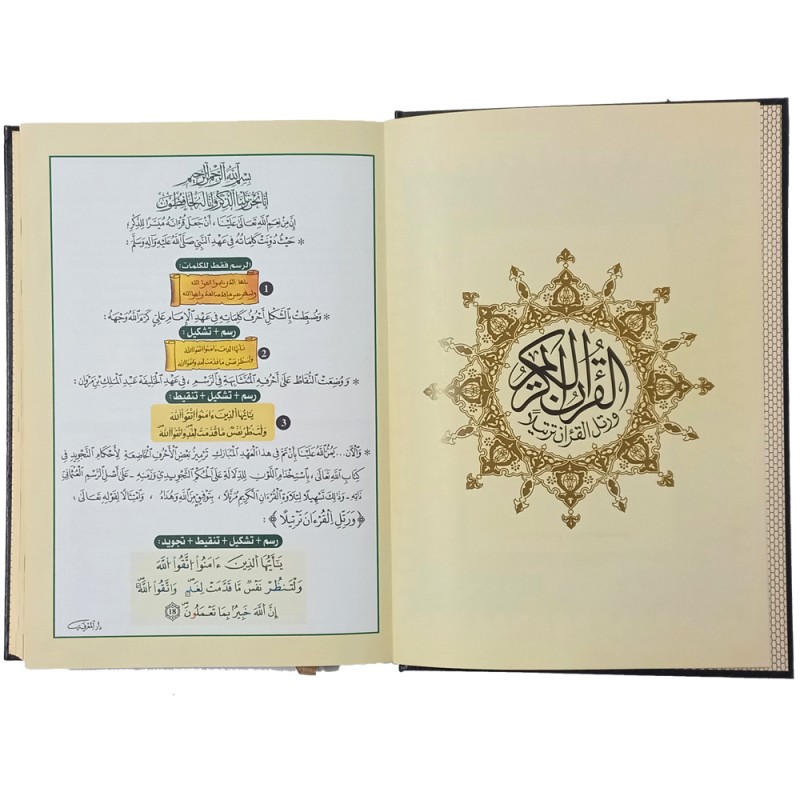 بِسْمِ اللَّهِ الرَّحْمَٰنِ الرَّحِيمِ
إِنَّا نَحْنُ نَزَّلْنَا الذِّكْرَ وَإِنَّا لَهُ لَحَافِظُونَ
إِنَّ مِنْ نِعَمِ اللَّهِ تَعَالَى عَلَيْنَا، أَنْ جَعَلَ قُرْءَانَهُ مُيَسَّرًا لِلذِّكْرِ:
* حَيْثُ دُوِّنَتْ كَلِمَاتُهُ فِي عَهْدِ النَّبِيِّ صَلَّى اللَّهُ عَلَيْهِ وَآلِهِ وَسَلَّمَ:
الرسم فقط للكلمات:
1
* وَضُبِطَتْ بِالشَّكْلِ أَحْرُفُ كَلِمَاتِهِ فِي عَهْدِ الْإِمَامِ عَلِيٍّ كَرَّمَ اللَّهُ وَجْهَهُ:
رسم + تشكيل:
2
* وَوُضِعَتْ النُّقَاطُ عَلَى أَحْرُفِهِ الْمُتَشَابِهَةِ فِي الرَّسْمِ، فِي عَهْدِ الْخَلِيفَةِ عَبْدِ الْمَلِكِ بْنِ مَرْوَانَ:
رسم + تشكيل + تنقيط:
يَٰٓأَيُّهَا الَّذِينَ ءَامَنُوا اتَّقُوا اللَّهَ
وَلْتَنظُرْ نَفْسٌ مَّا قَدَّمَتْ لِغَدٍ وَاتَّقُوا اللَّهَ
3
* وَالْآنَ... يَمُنُّ اللَّهُ عَلَيْنَا بِأَنْ تَمَّ فِي هَذَا الْعَهْدِ الْمُبَارَكِ تَرْمِيزُ بَعْضِ الْأَحْرُفِ الْخَاضِعَةِ لِأَحْكَامِ التَّجْوِيدِ فِي
كِتَابِ اللَّهِ تَعَالَى، بِاسْتِخْدَامِ اللَّوْنِ لِلدِّلَالَةِ عَلَى الْحُكْمِ التَّجْوِيدِيِّ وَزَمَنِهِ - عَلَى أَصْلِ الرَّسْمِ الْعُثْمَانِيِّ
ذَاتِهِ - وَذَلِكَ تَسْهِيلًا لِتِلَاوَةِ الْقُرْءَانِ الْكَرِيمِ مُرَتَّلًا، بِتَوْفِيقٍ مِنَ اللَّهِ وَهُدَاهُ، وَامْتِثَالًا لِقَوْلِهِ تَعَالَى،
﴿ وَرَتِّلِ الْقُرْءَانَ تَرْتِيلًا ﴾:
رسم + تشكيل + تنقيط + تجويد:
يَٰٓأَيُّهَا الَّذِينَ ءَامَنُوا اتَّقُوا اللَّهَ
وَلْتَنظُرْ نَفْسٌ مَّا قَدَّمَتْ لِغَدٍ وَاتَّقُوا اللَّهَ
إِنَّ اللَّهَ خَبِيرٌ بِمَا تَعْمَلُونَ 18
دَارُ الْمَعْرِفَةِ
القُرآن الكريم
ورتل القرآن ترتيلاً